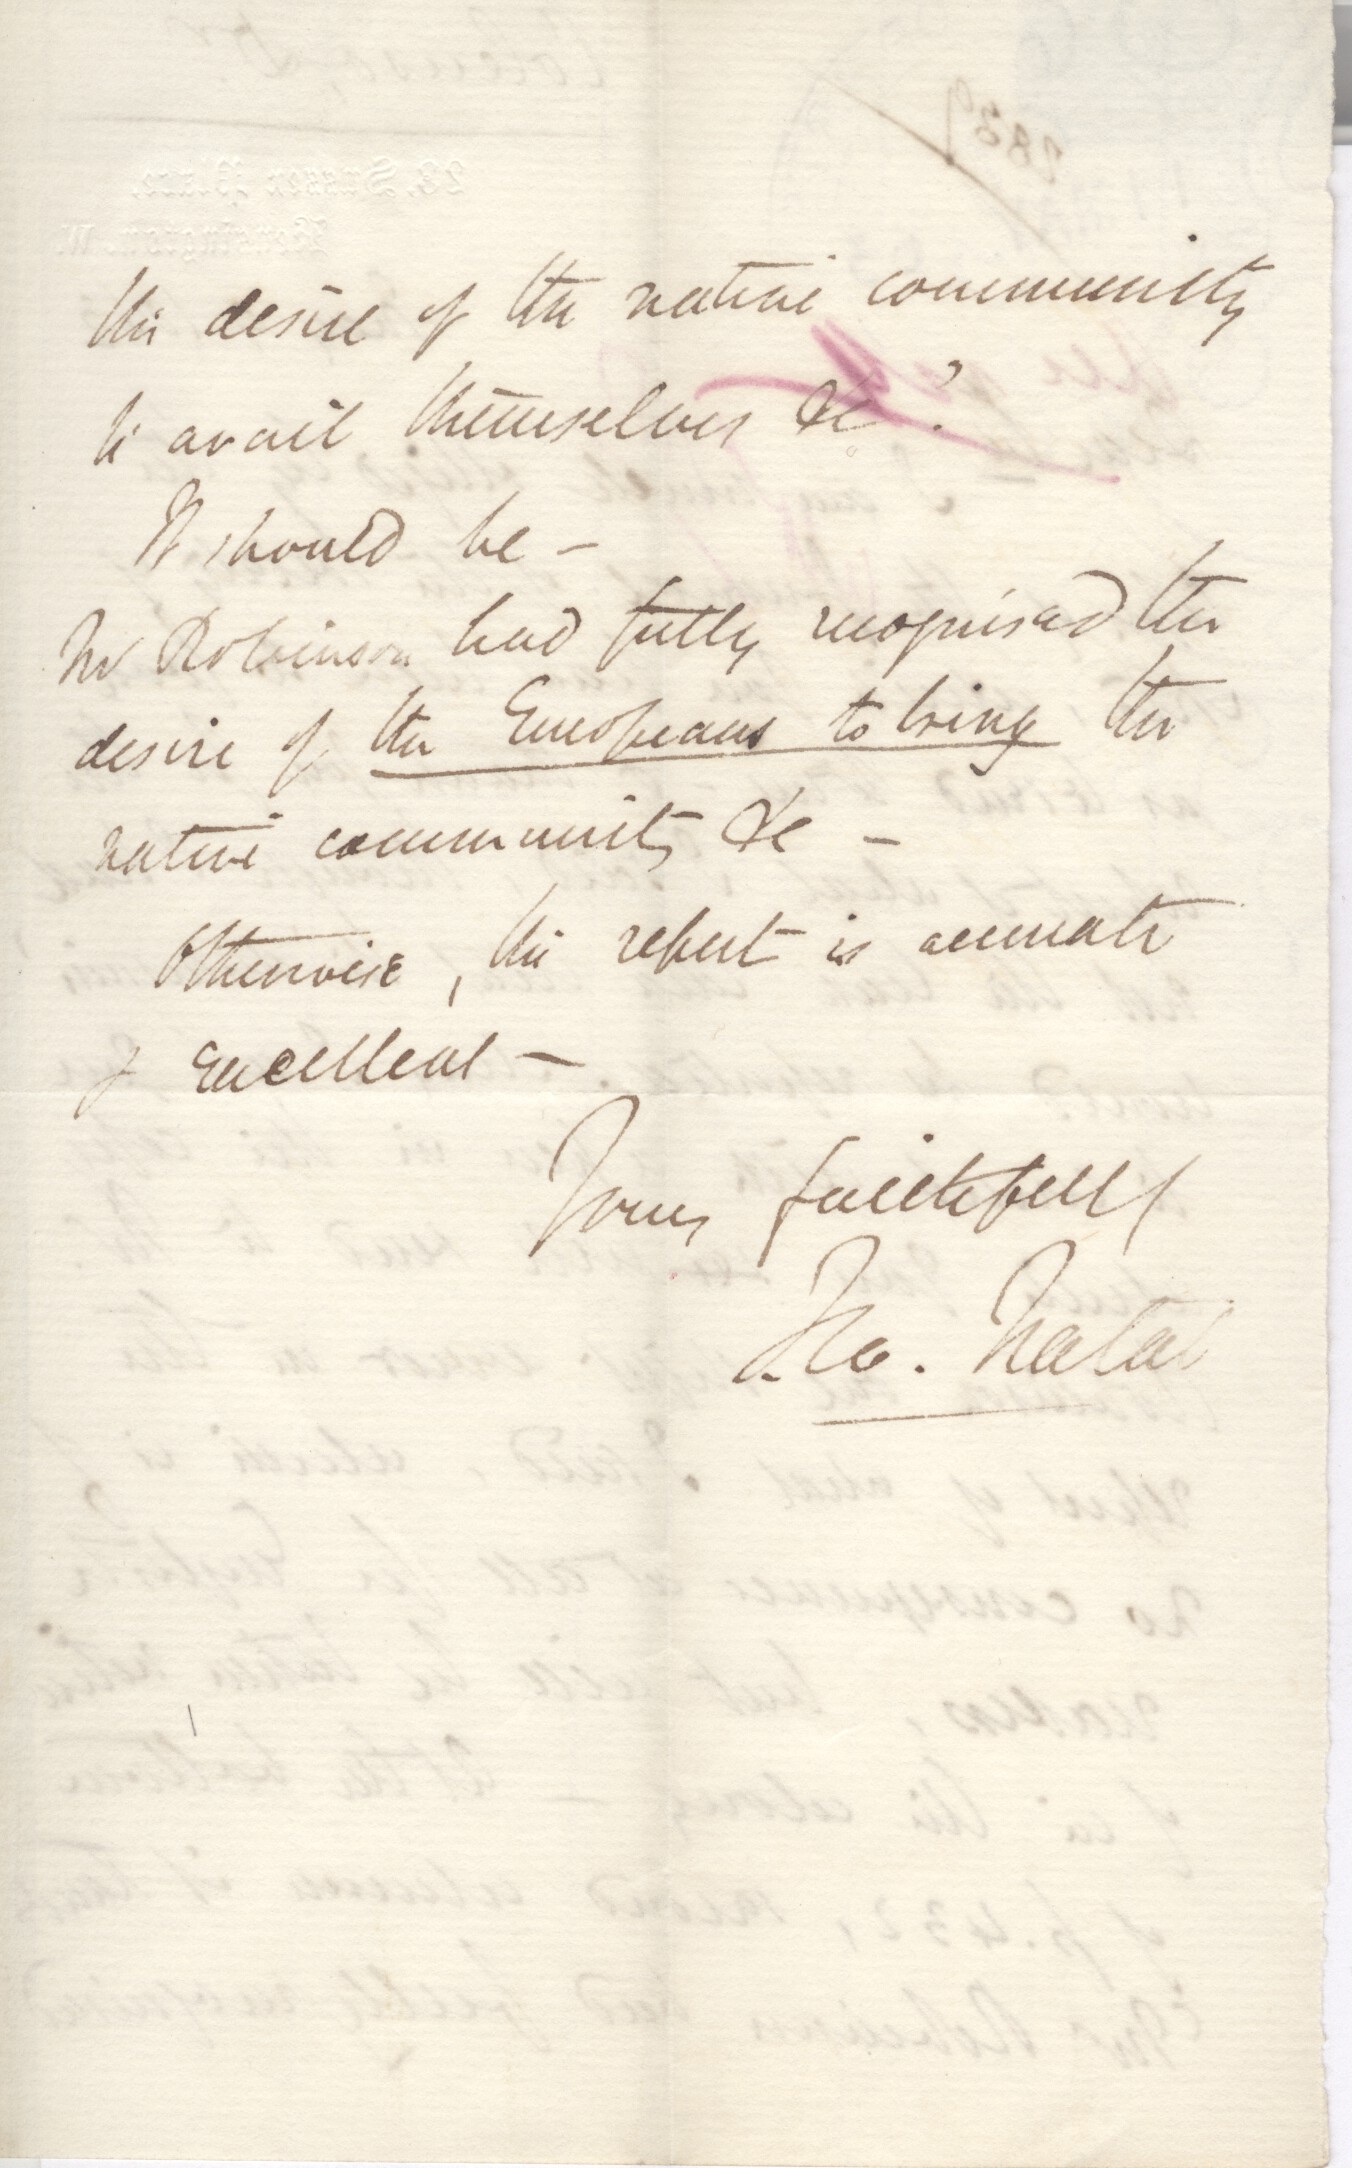 the desire of the native community
to avail themselves &c".
It should be –
Mr Robinson had fully recognised the
desire of the Europeans to bring the
native community &c –
Otherwise, the report is accurate
& excellent –
Yours faithfully
Natal